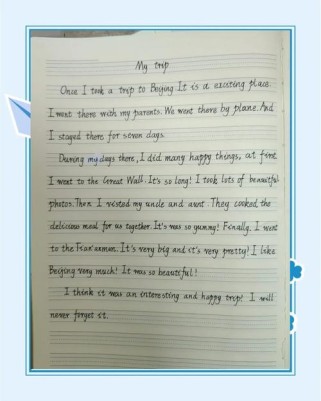 My trip
Once I took a trip to Beijing It is a exciting place.
I went there with my parents. We went there by plane. And
I stayed there for seven days.
During my days there, I did many happy things, at first
I went to the Great Wall. It's so long! I took lots of beautiful
photos. Then I visted my uncle and aunt. They cooked the
delicious meal for us together. It's was so yummy! Finally, I went
to the Tian'anmen. It's very big and it's very pretty! I like
Beijing very much! It was so beautiful!
I think it was an interesting and happy trip! I will
never forget it.